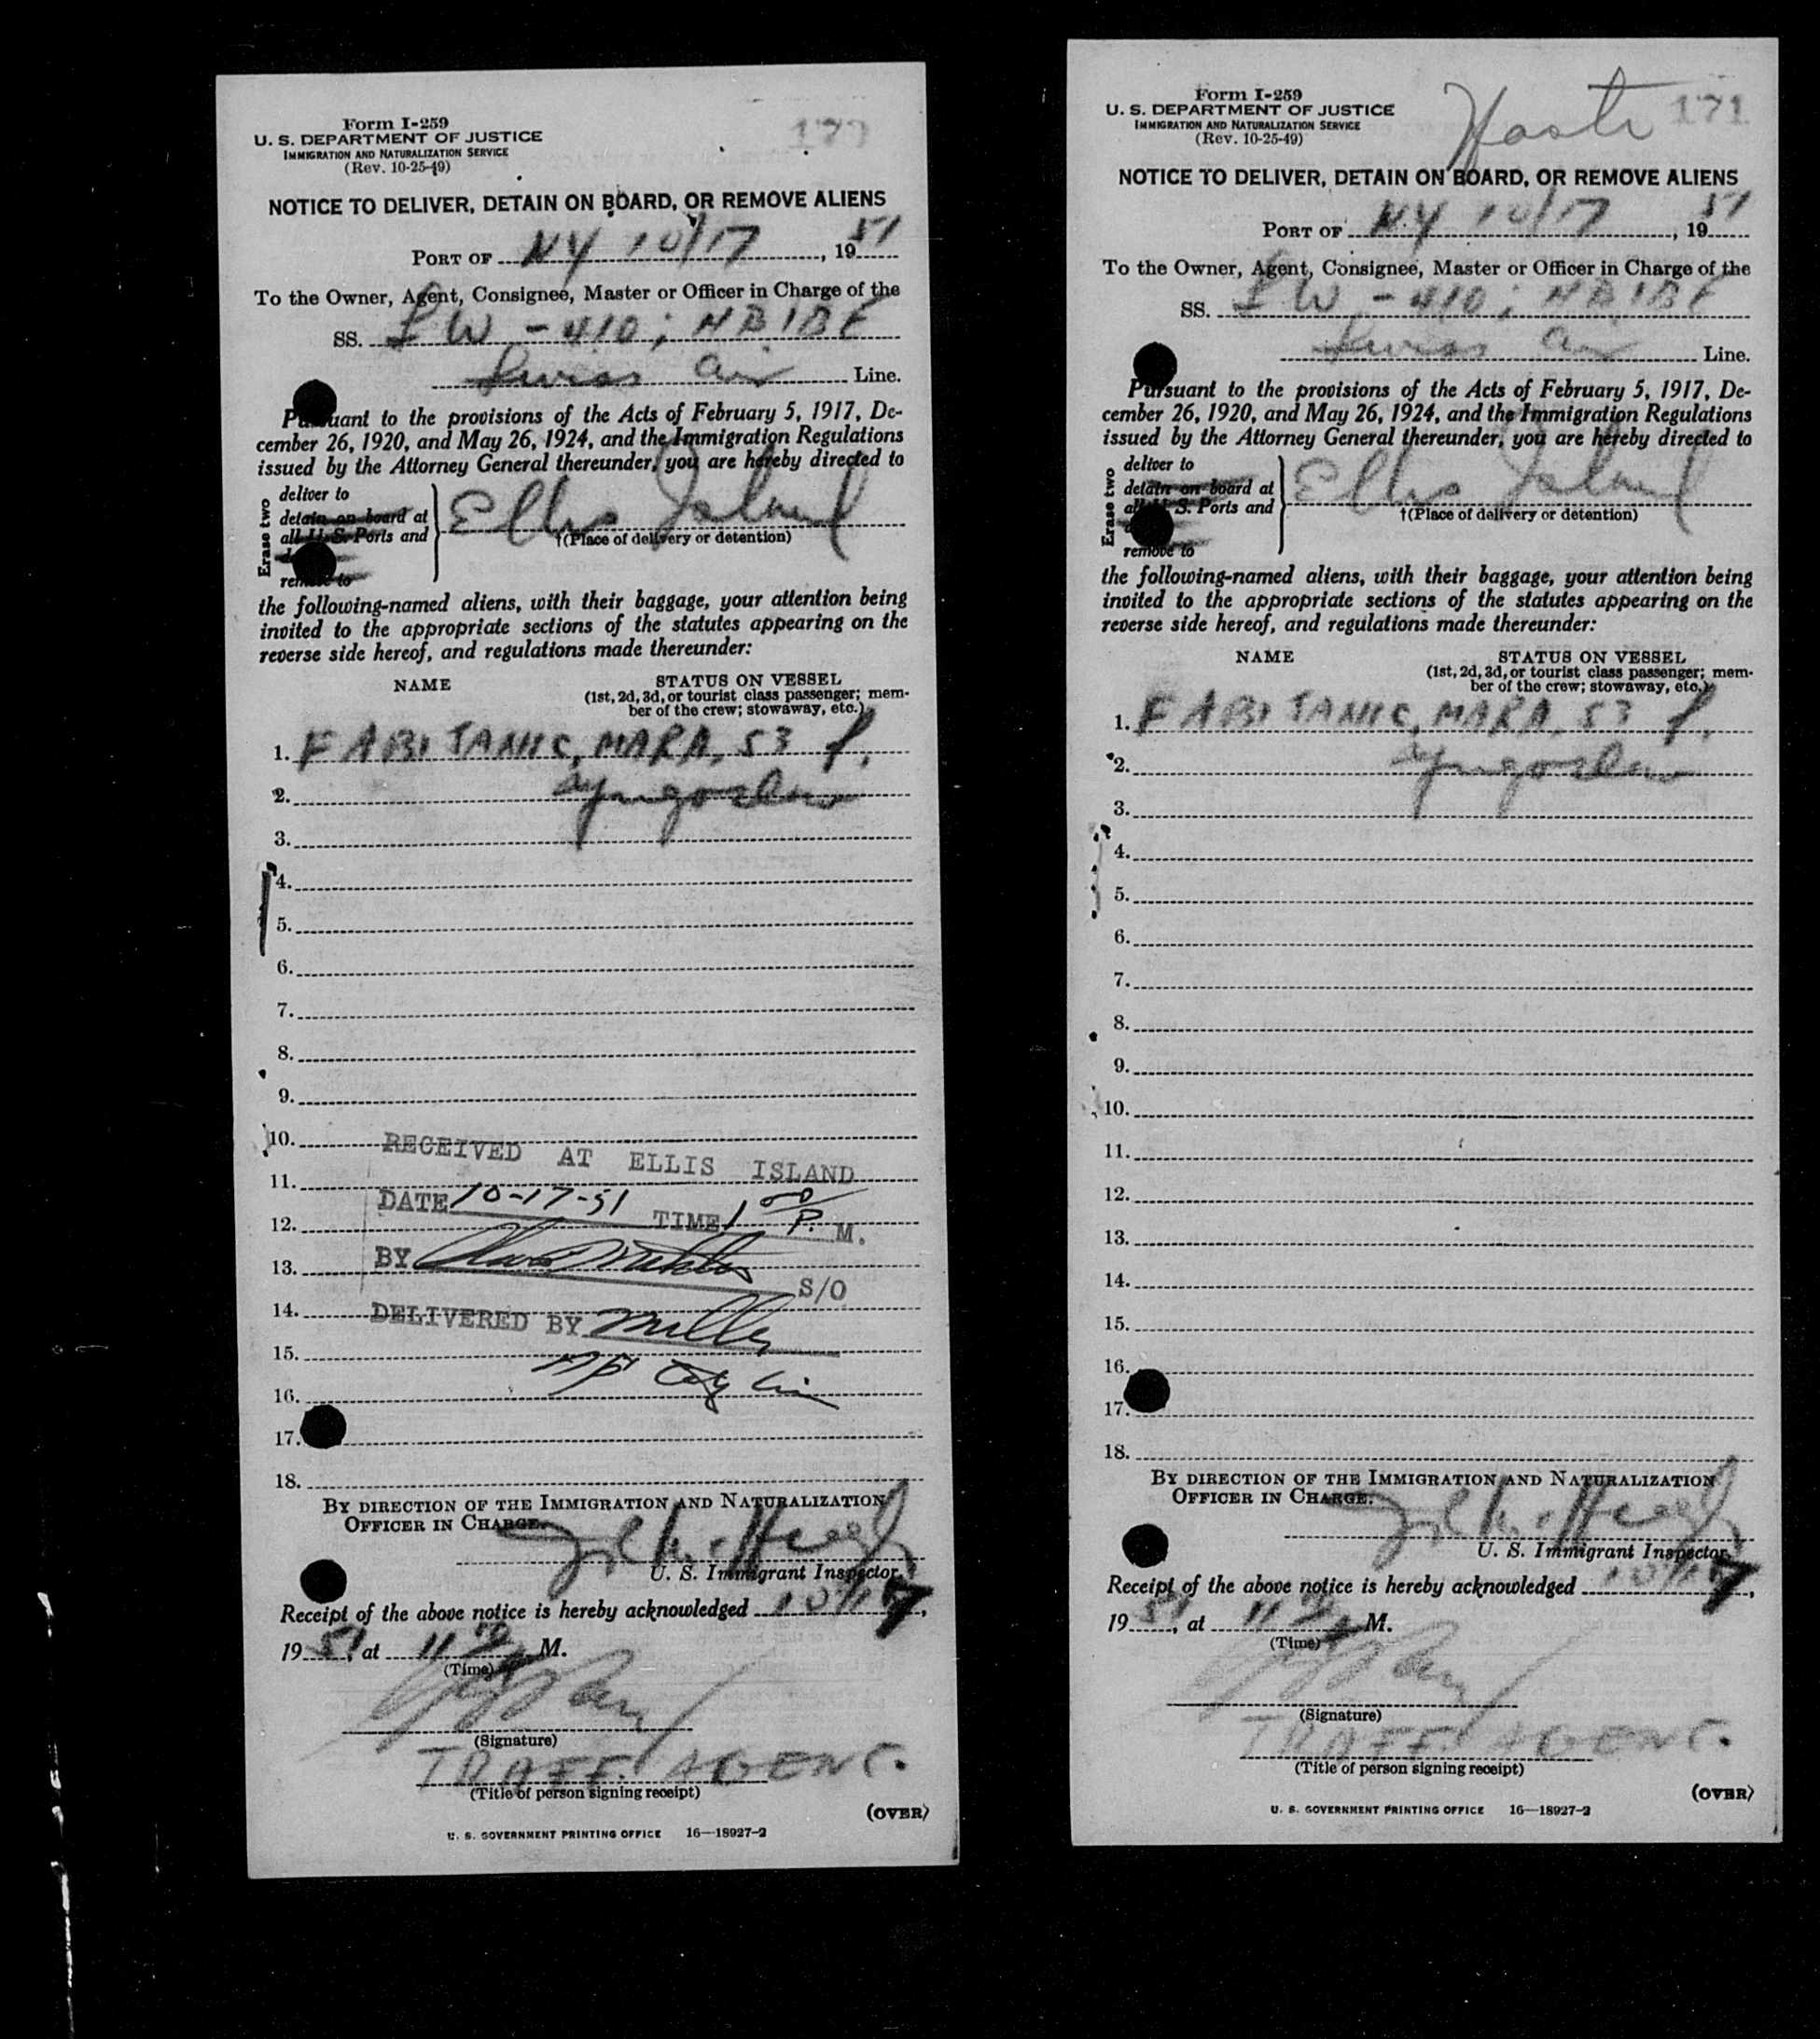 Form I-259
U. S. DEPARTMENT OF JUSTICE
IMMIGRATION AND NATURALIZATION SERVICE
(Rev. 10-25-49)
NOTICE TO DELIVER, DETAIN ON BOARD, OR REMOVE ALIENS
PORT OF NY 10/17, 1951
To the Owner, Agent, Consignee, Master or Officer in Charge of the
SS. W-410; HBIBE
Swiss Air Line.
Pursuant to the provisions of the Acts of February 5, 1917, De-
cember 26, 1920, and May 26, 1924, and the Immigration Regulations
issued by the Attorney General thereunder, you are hereby directed to
Erase two
deliver to
detain on board at
all U. S. Ports and
remove to
Ellis Island
†(Place of delivery or detention)
the following-named aliens, with their baggage, your attention being
invited to the appropriate sections of the statutes appearing on the
reverse side hereof, and regulations made thereunder:
NAME STATUS ON VESSEL
(1st, 2d, 3d, or tourist class passenger; mem-
ber of the crew; stowaway, etc.)
1. FABIJANIC, MARA, 53 f,
2. yugoslav
3.
4.
5.
6.
7.
8.
9.
10.
RECEIVED AT ELLIS ISLAND
11.
DATE 10-17-51 TIME 1 00 P. M.
12.
13. BY S/O
14. DELIVERED BY Miller
15.
16.
17.
18.
BY DIRECTION OF THE IMMIGRATION AND NATURALIZATION
OFFICER IN CHARGE.
U. S. Immigrant Inspector.
Receipt of the above notice is hereby acknowledged 10/17,
1951, at 11 M.
(Time)
(Signature)
TRAFF. AGENT.
(Title of person signing receipt)
(OVER)
U. S. GOVERNMENT PRINTING OFFICE 16—18927-2
Form I-259
U. S. DEPARTMENT OF JUSTICE
IMMIGRATION AND NATURALIZATION SERVICE
(Rev. 10-25-49)
171
NOTICE TO DELIVER, DETAIN ON BOARD, OR REMOVE ALIENS
PORT OF N.Y 10/17, 1951
To the Owner, Agent, Consignee, Master or Officer in Charge of the
SS. W-410; HBIBE
Swiss Air Line.
Pursuant to the provisions of the Acts of February 5, 1917, De-
cember 26, 1920, and May 26, 1924, and the Immigration Regulations
issued by the Attorney General thereunder, you are hereby directed to
Erase two
deliver to
detain on board at
all U. S. Ports and
remove to
Ellis Island
†(Place of delivery or detention)
the following-named aliens, with their baggage, your attention being
invited to the appropriate sections of the statutes appearing on the
reverse side hereof, and regulations made thereunder:
NAME STATUS ON VESSEL
(1st, 2d, 3d, or tourist class passenger; mem-
ber of the crew; stowaway, etc.)
1. FABIJANIC, MARA, 53 f,
2. yugoslav
3.
4.
5.
6.
7.
8.
9.
10.
11.
12.
13.
14.
15.
16.
17.
18.
BY DIRECTION OF THE IMMIGRATION AND NATURALIZATION
OFFICER IN CHARGE.
U. S. Immigrant Inspector.
Receipt of the above notice is hereby acknowledged 10/17,
1951, at 11 M.
(Time)
(Signature)
TRAFF. AGENT.
(Title of person signing receipt)
(OVER)
U. S. GOVERNMENT PRINTING OFFICE 16—18927-2